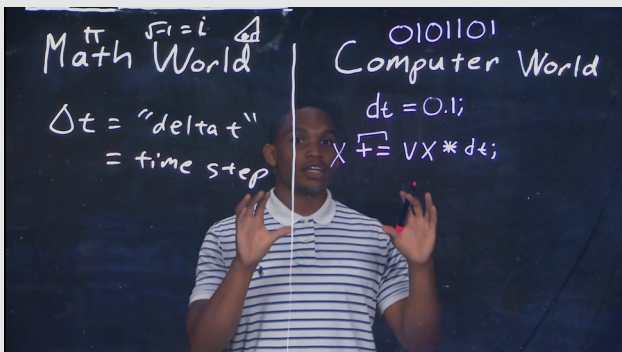 π √-1 = i
Math World
Δt = "delta t"
= time step
0101101
Computer World
dt = 0.1;
x += vx * dt;